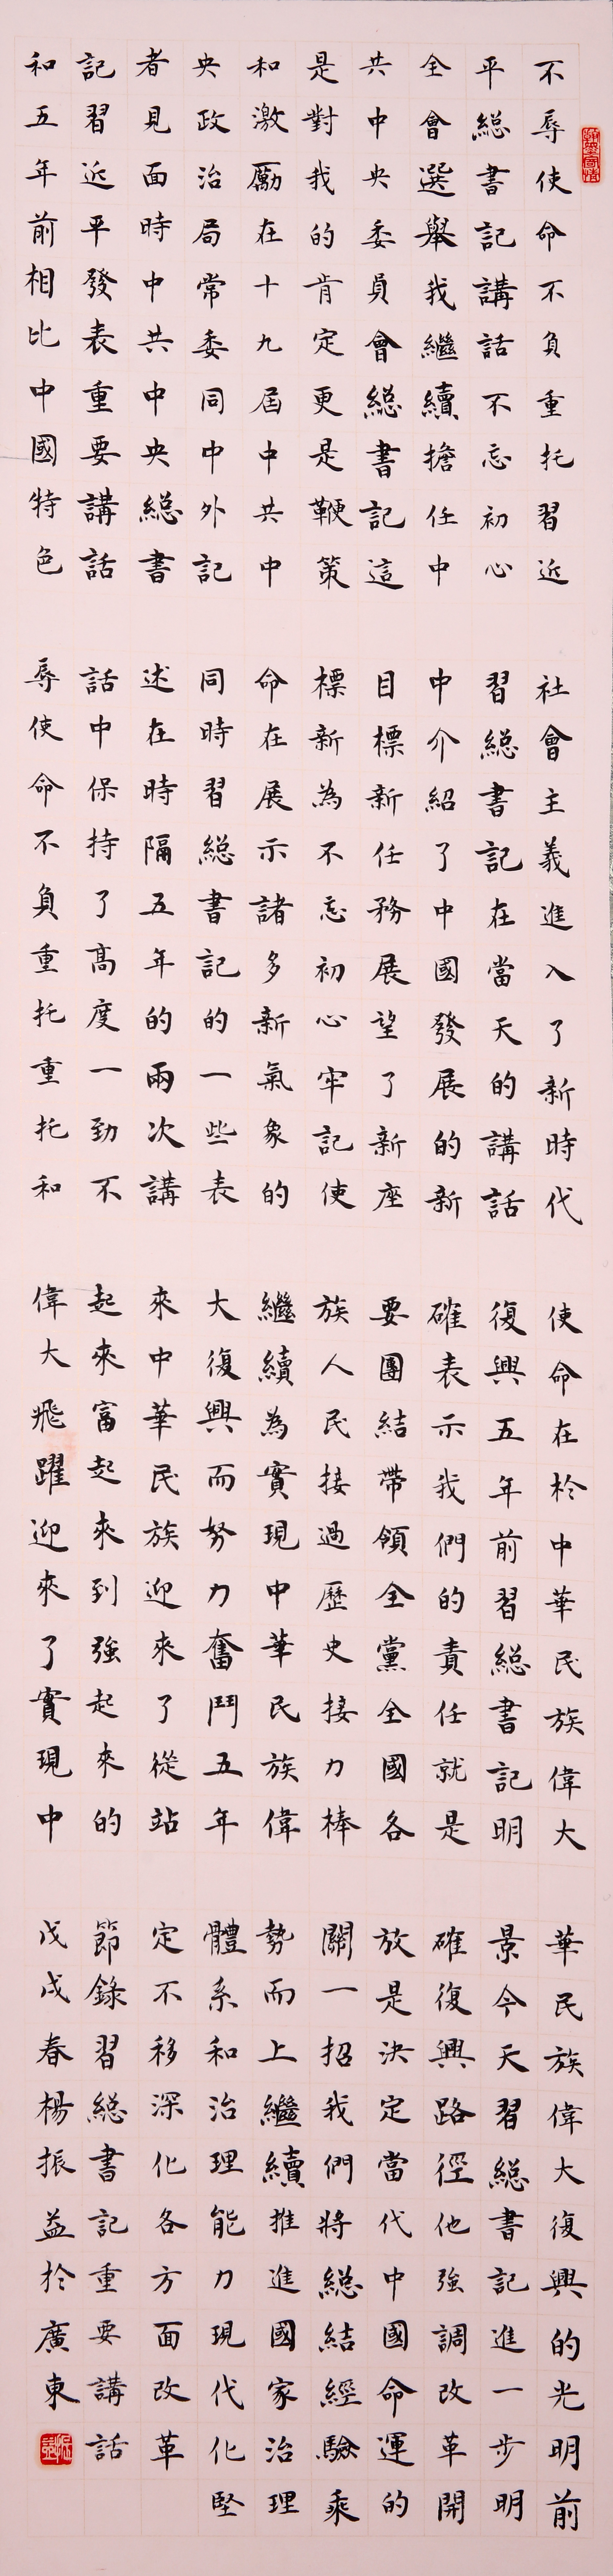 不辱使命不負重托習近
平総書記講話不忘初心
全會選舉我繼續擔任中
共中央委員會総書記這
是對我的肯定更是鞭策
和激勵在十九屆中共中
央政治局常委同中外記
者見面時中共中央総書
記習近平發表重要講話
和五年前相比中國特色
社會主義進入了新時代
習総書記在當天的講話
中介紹了中國發展的新
目標新任務展望了新座
標新為不忘初心牢記使
命在展示諸多新氣象的
同時習総書記的一些表
述在時隔五年的兩次講
話中保持了高度一勁不
辱使命不負重托重托和
使命在於中華民族偉大
復興五年前習総書記明
確表示我們的責任就是
要團結帶領全黨全國各
族人民接過歷史接力棒
繼續為實現中華民族偉
大復興而努力奮鬥五年
來中華民族迎來了從站
起來富起來到強起來的
偉大飛躍迎來了實現中
華民族偉大復興的光明前
景今天習総書記進一步明
確復興路徑他強調改革開
放是決定當代中國命運的
關一招我們將総結經驗乘
勢而上繼續推進國家治理
體系和治理能力現代化堅
定不移深化各方面改革
節錄習総書記重要講話
戊戌春楊振益於廣東